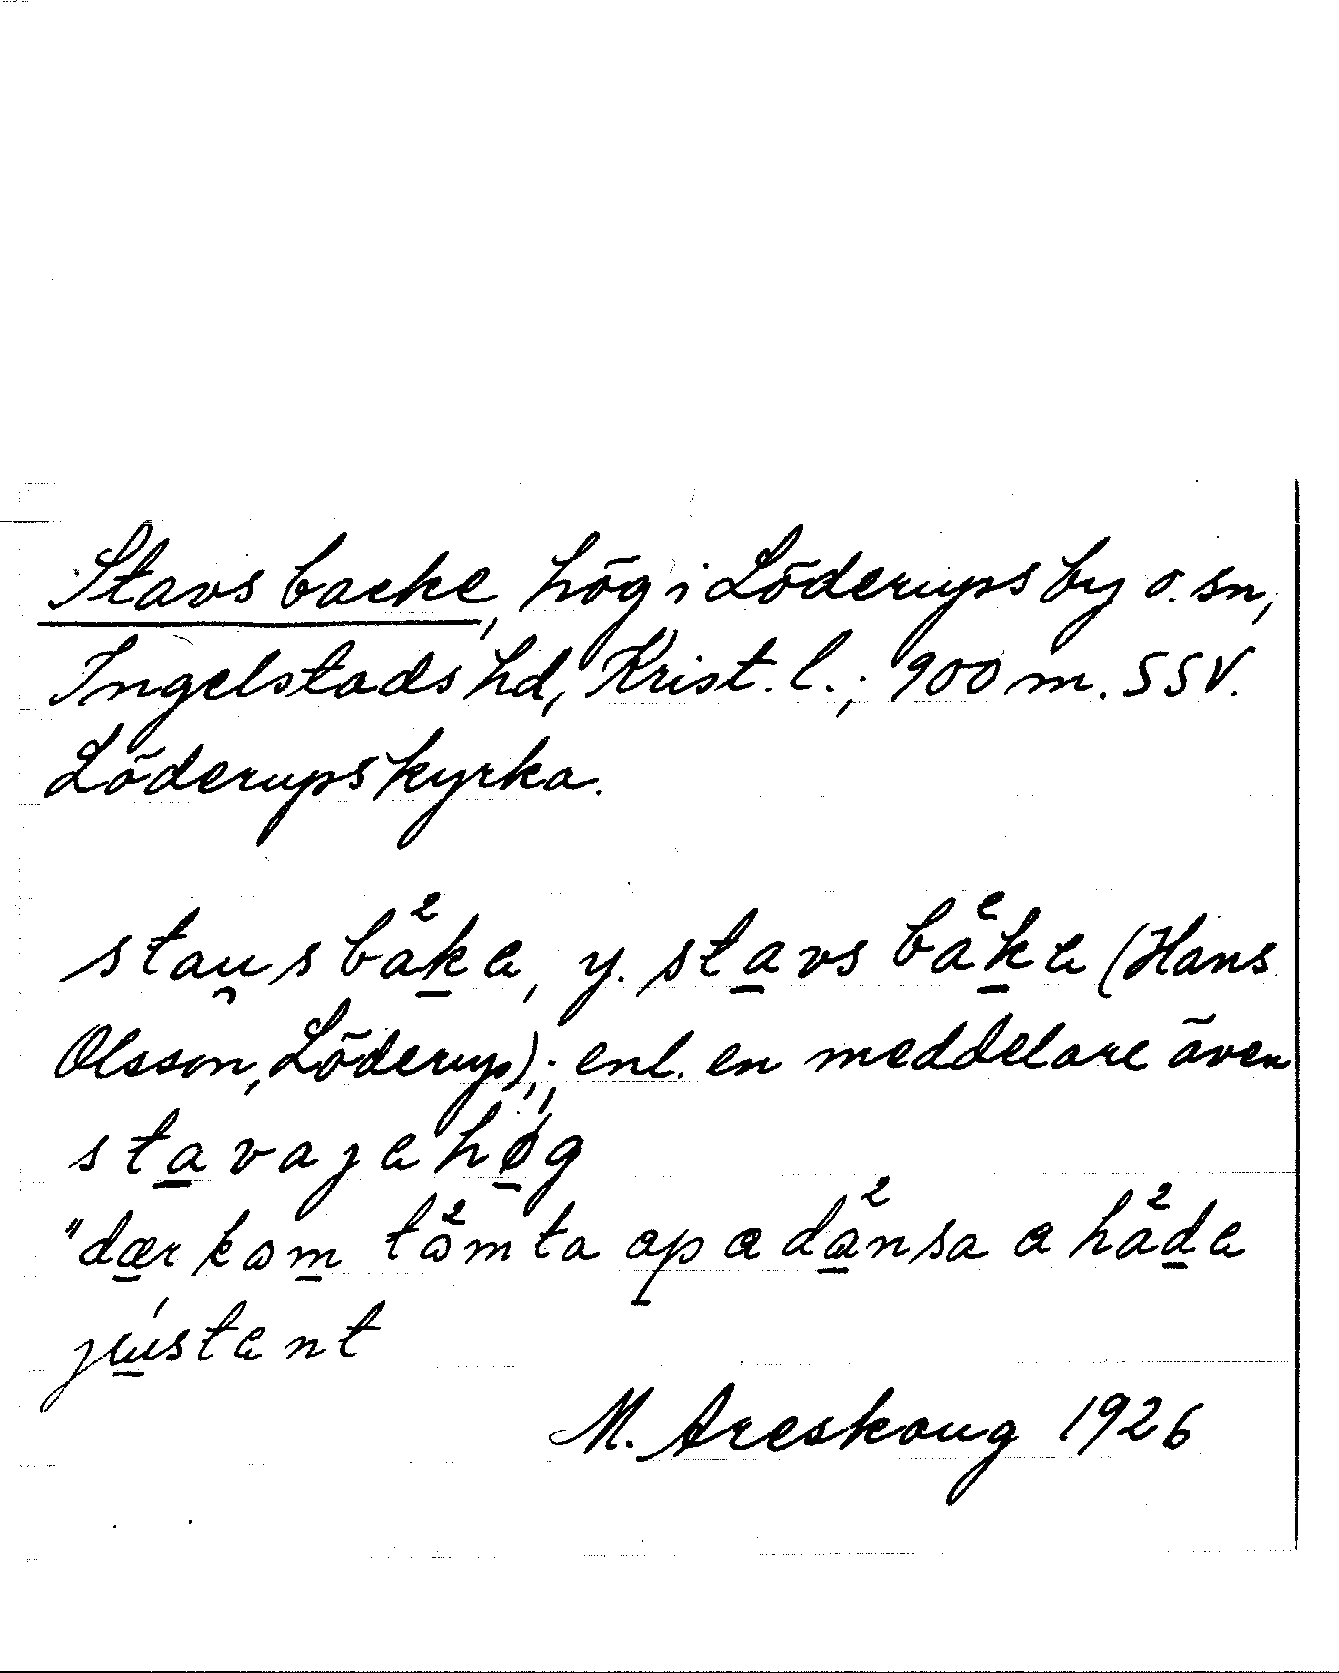 Stavs backe, hög i Löderups by o. sn,
Ingelstads hd, Krist. l.; 900 m. SSV.
Löderups kyrka.
stau̯s bå²ka, y. stavs bå²ka (Hans
Olsson, Löderup); enl. en meddelare även
stavajahǿg
"dær kom tå²mta apa då²nsa a hå²da
jústant
M. Areskoug 1926